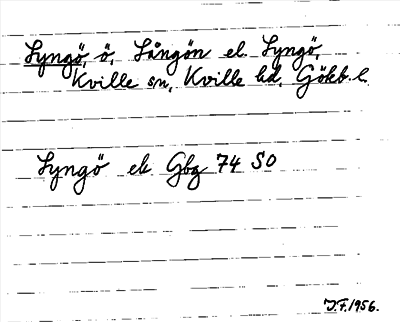 Lyngö, ö, Långön el. Lyngö,
Kville sn, Kville hd, Göteb. l.
Lyngö ek Gbg 74 SO
J.F. 1956.